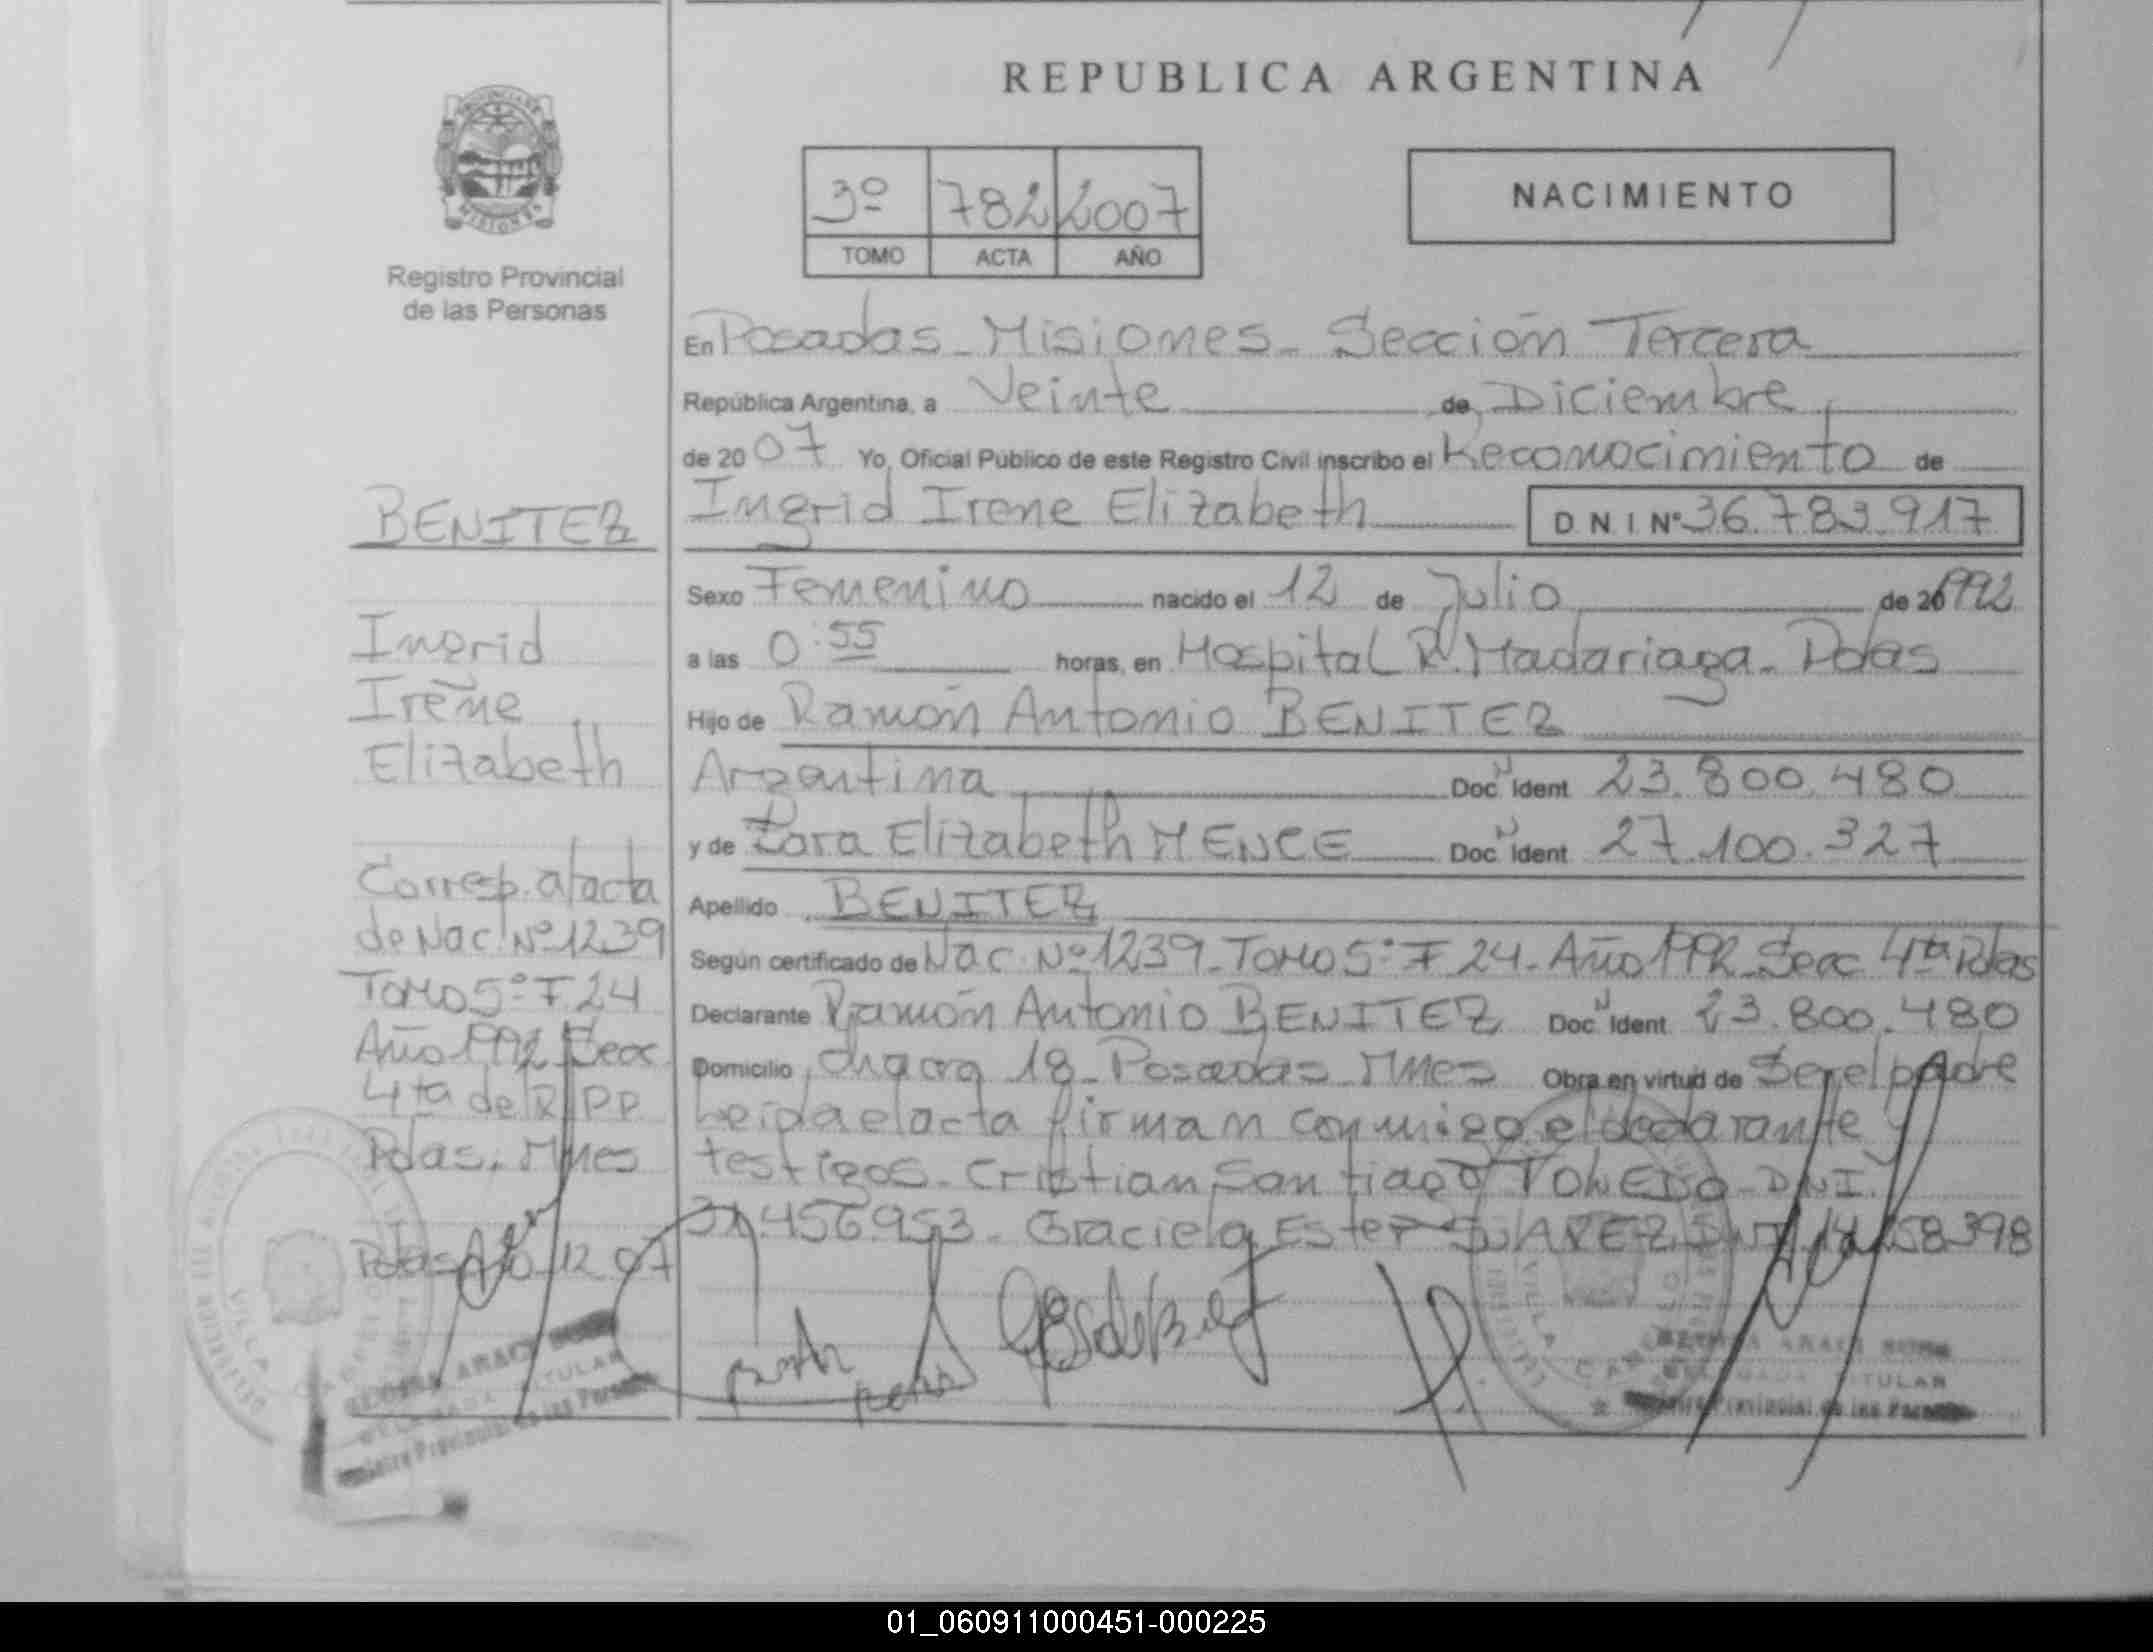 REPUBLICA ARGENTINA
PROVINCIA DE
MISIONES
Registro Provincial
de las Personas
3º 782 2007
TOMO ACTA AÑO
NACIMIENTO
En Posadas - Misiones - Sección Tercera
República Argentina, a Veinte de Diciembre
de 2007 Yo, Oficial Público de este Registro Civil inscribo el Reconocimiento de
Ingrid Irene Elizabeth D.N.I. Nº 36.783.917
Sexo Femenino nacido el 12 de Julio de 1992
a las 0:55 horas, en Hospital R. Madariaga - Pdas
Hijo de Ramón Antonio BENITEZ
Argentina Doc. Ident 23.800.480
y de Zara Elizabeth MENCE Doc. Ident 27.100.327
Apellido BENITEZ
Según certificado de Nac. Nº 1239 - Tomo 5º F 24 - Año 1992 - Secc 4ta Pdas
Declarante Ramón Antonio BENITEZ Doc. Ident 23.800.480
Domicilio Chacra 18 - Posadas - Mnes Obra en virtud de Ser el padre
Leida el acta firman conmigo el declarante y
testigos - Cristian Santiago TOLEDO - DNI.
31.456.953 - Graciela Ester SUAREZ DNI 58.398
BENITEZ
Ingrid
Irene
Elizabeth
Corresp. a/acta
de Nac. Nº 1239
Tomo 5º F 24
Año 1992 Secc
4ta de R.P.P
Pdas. Mnes
Pdas 12.07
ARACI
TITULAR
Registro Provincial de las Personas
ARACI
TITULAR
Provincial de las Personas
01_060911000451-000225